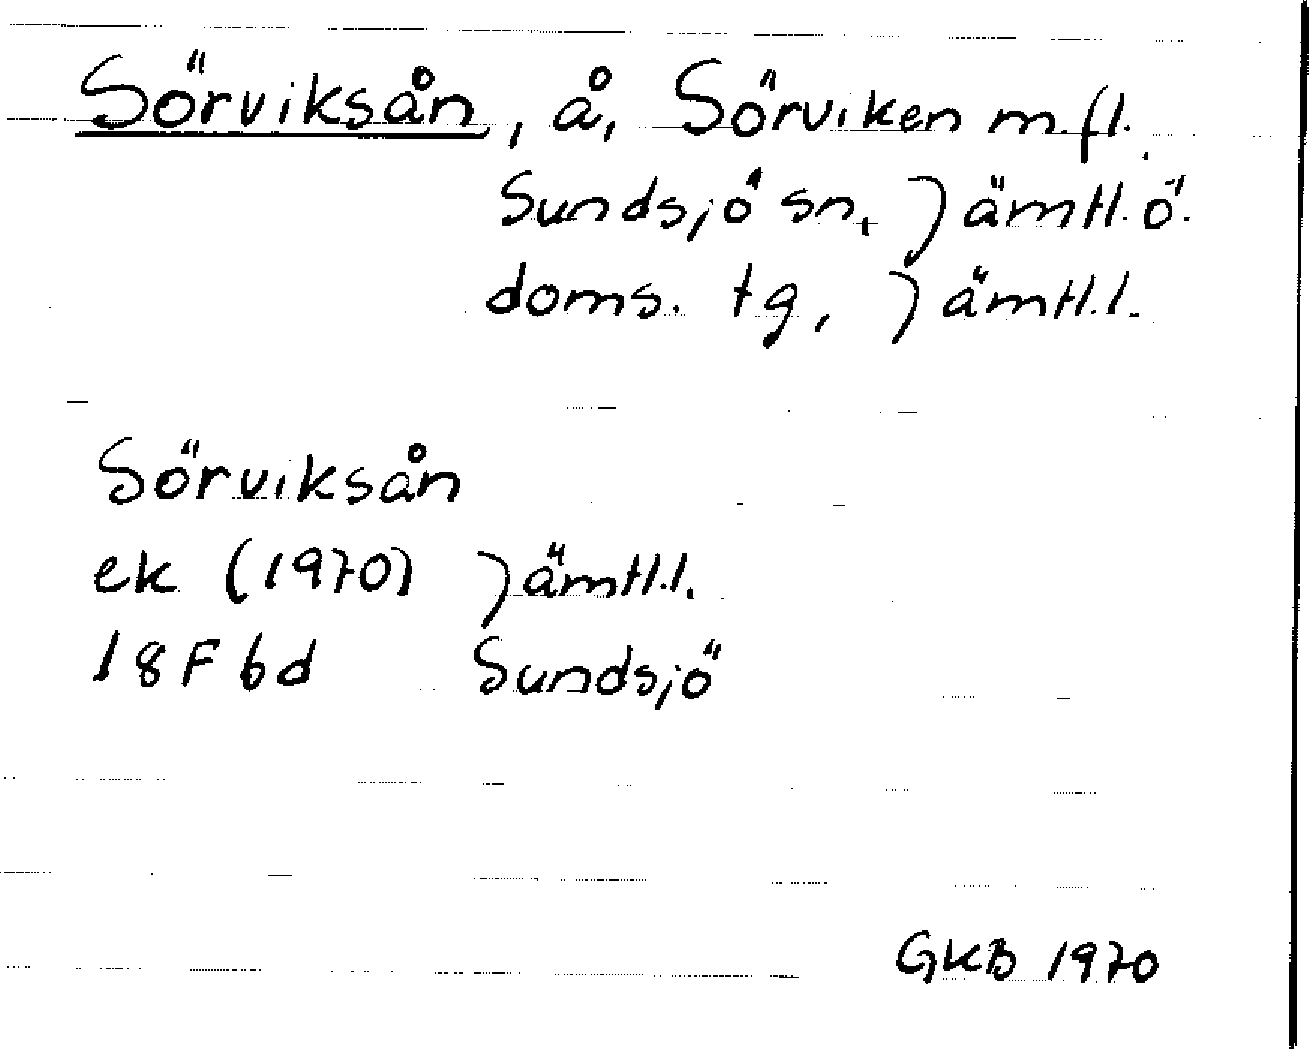 Sörviksån, å, Sörviken m.fl.
Sundsjö sn, Jämtl. ö.
doms. tg, Jämtl.l.
Sörviksån
ek (1970) Jämtl.l.
18F 6d Sundsjö
GKB 1970